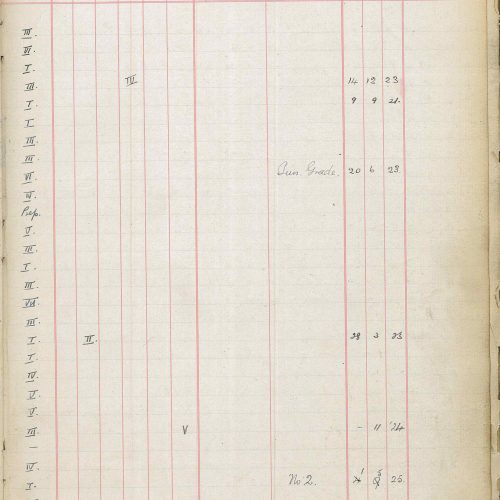 III.
VI.
I.
III. IV 14 12 23
I. 9 9 21.
I
III.
III.
VI. Jun. Grade. 20 6 23.
V.
Prep.
V.
III.
I.
III.
VII.
III.
I. II. 28 3 23
I.
IV.
V.
V.
III. V - 11 '24
-
IV.
I. No 2. 1 5 25